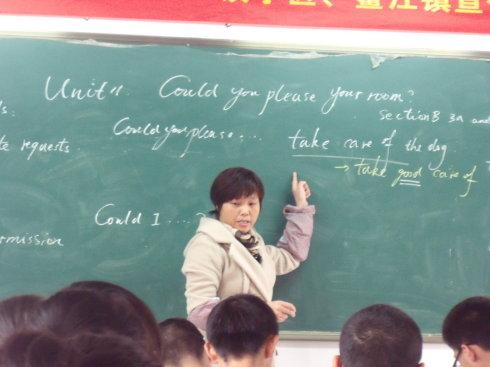 学区、鳌江镇宣
Unit 11 Could you please your room?
Section B 3A and
ds:
te requests. Could you please.... take care of the dog
→ take good care of
Could I ....?
rmission